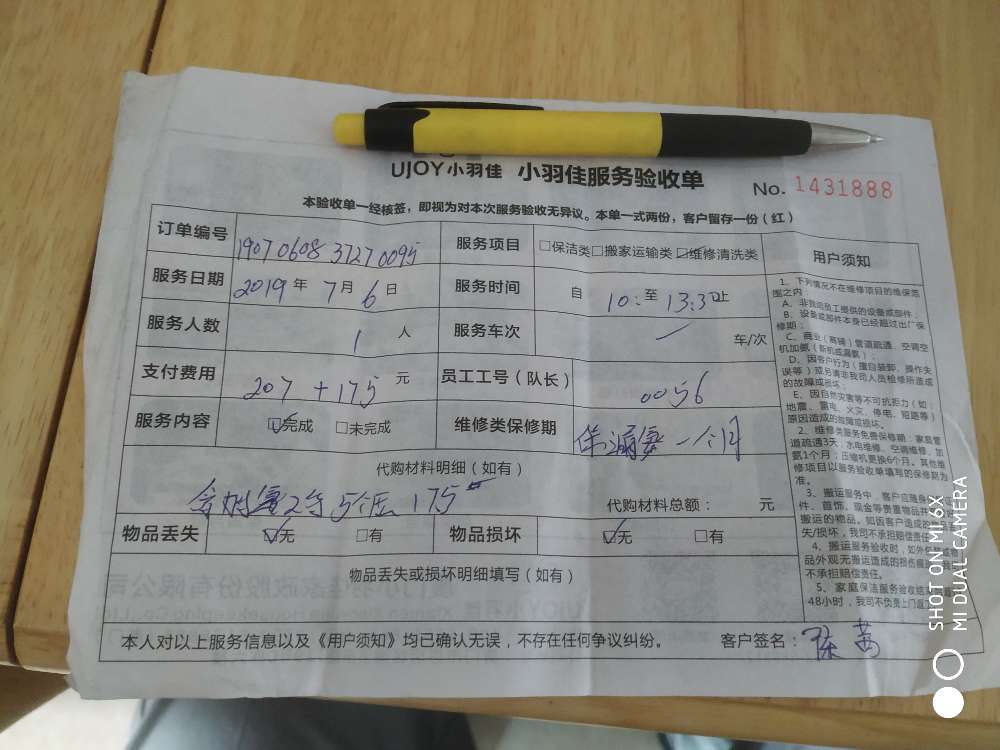 UJOY小羽佳 小羽佳服务验收单 No. 1431888
本验收单一经核签，即视为对本次服务验收无异议。本单一式两份，客户留存一份（红）
订单编号 19070608 37270095 服务项目 □保洁类□搬家运输类☑维修清洗类 用户须知
服务日期 2019年7月6日 服务时间 自 10: 至 13:30止
服务人数 1 人 服务车次 / 车/次
支付费用 207+175 元 员工工号（队长） 0056
服务内容 ☑完成 □未完成 维修类保修期 一个月
代购材料明细（如有）
175 代购材料总额： 元
物品丢失 ☑无 □有 物品损坏 ☑无 □有
物品丢失或损坏明细填写（如有）
本人对以上服务信息以及《用户须知》均已确认无误，不存在任何争议纠纷。 客户签名：
1、下列情况不在维修项目的维保范
围之内：
A、非我司员工提供的设备或部件；
B、设备或部件本身已经超过出厂保
修期；
C、商业（商铺）管道疏通、空调空
机加氨（新机或漏氨）；
D、因客户行为（擅自装卸、操作失
误等）或另请非我司人员检修所造成
的故障或损坏；
E、因自然灾害等不可抗拒力（如：
地震、雷电、火灾、停电、短路等）
原因造成的故障或损坏。
2、维修类服务免费保修期：家庭管
道疏通3天，水电维修、空调维修、加
氨1个月；压缩机更换6个月。其他维
修项目以服务验收单填写的保修期为
准。
3、搬运服务中，客户应随身
件、首饰、现金等贵重物品
搬运的物品。如因客户造成的物品
失/损坏，我司不承担赔偿责任
4、搬运服务验收时，如外
品外观无搬运造成的损伤痕
不承担赔偿责任。
5、家庭保洁服务验收结
48小时，我司不负责上门返
SHOT ON MI 6X
MI DUAL CAMERA